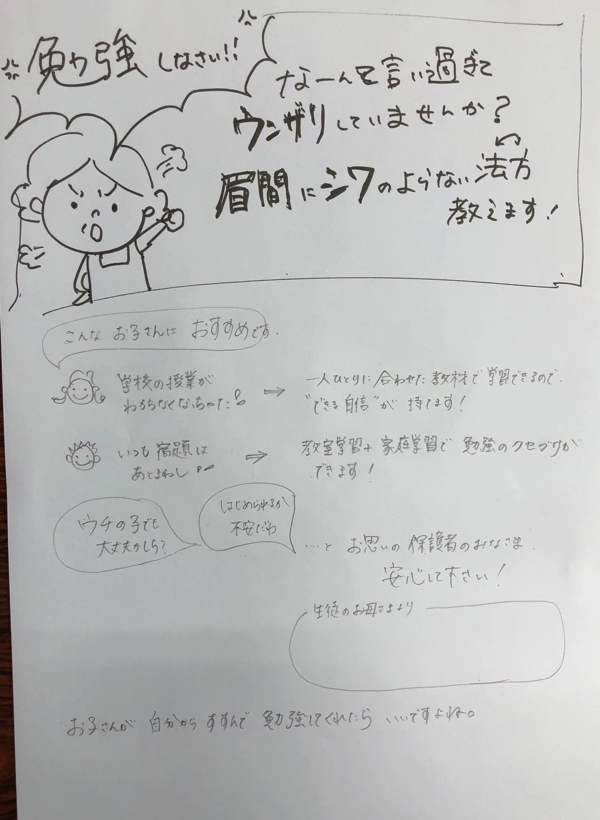 勉強しなさい!!
なーんて言い過ぎて
ウンザリしていませんか?
眉間にシワのよらない法方
教えます!
こんな お子さんに おすすめです.
学校の授業が
わからなくなっちゃった!
⇒
一人ひとりに合わせた教材で学習できるので、
"できる自信"が 持てます!
いつも 宿題は
あとまわし
⇒
教室学習+家庭学習で 勉強のクセづけが
できます!
ウチの子でも
大丈夫かしら?
はじめられるか
不安だわ
....と お思いの 保護者のみなさま
安心して下さい!
生徒のお母さまより
お子さんが 自分から すすんで 勉強してくれたら いいですよね。